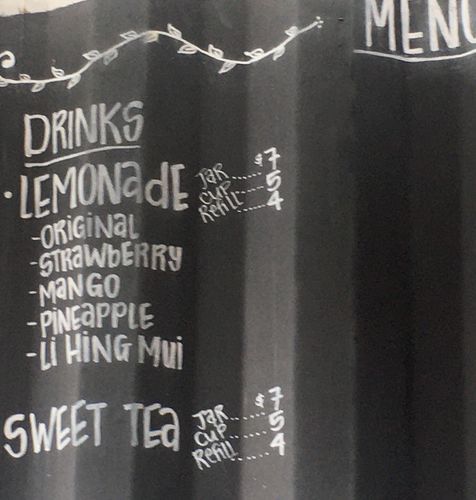 MENU
DRINKS
• LEMONADE JAR......$7
CUP.....5
Refill.....4
-ORIGINAL
-STRAWBERRY
-MANGO
-PINEAPPLE
-LI HING MUI
SWEET TEA JAR......$7
CUP.....5
Refill.....4